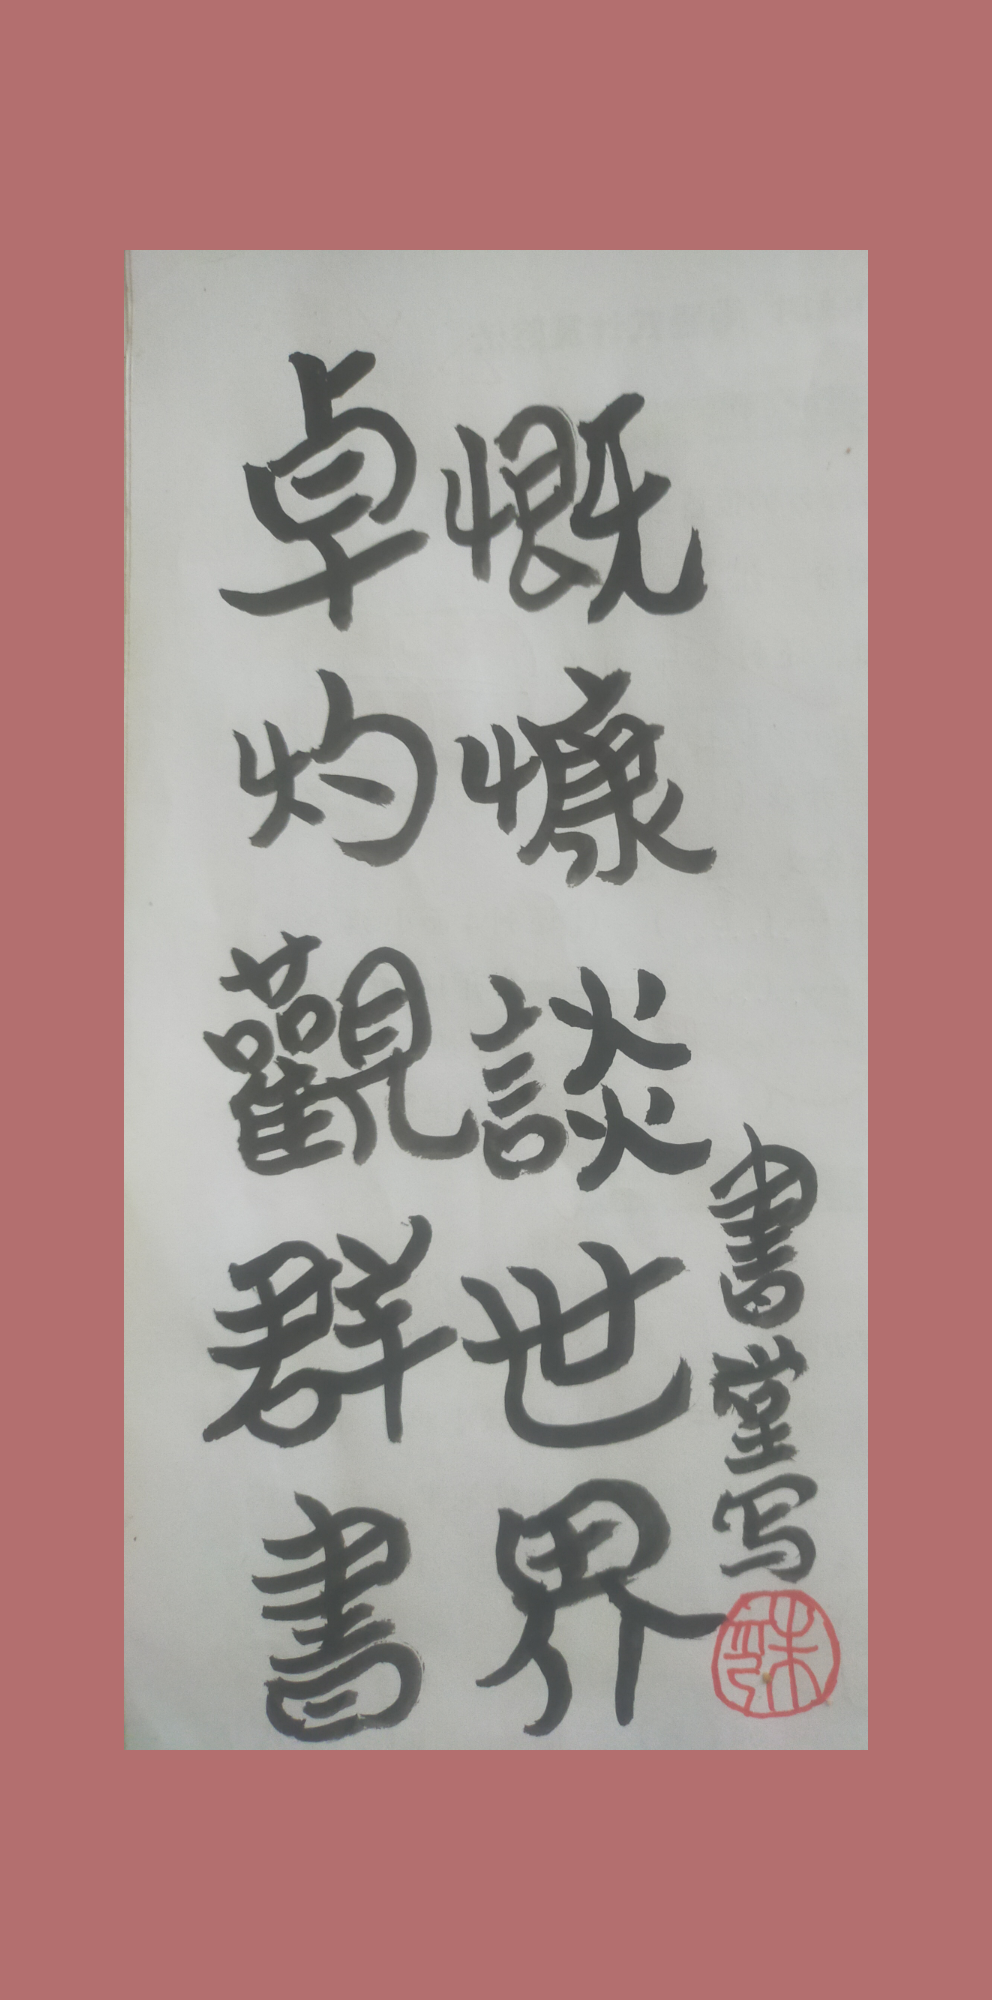 卓灼觀群書
慨慷談世界
書堂写